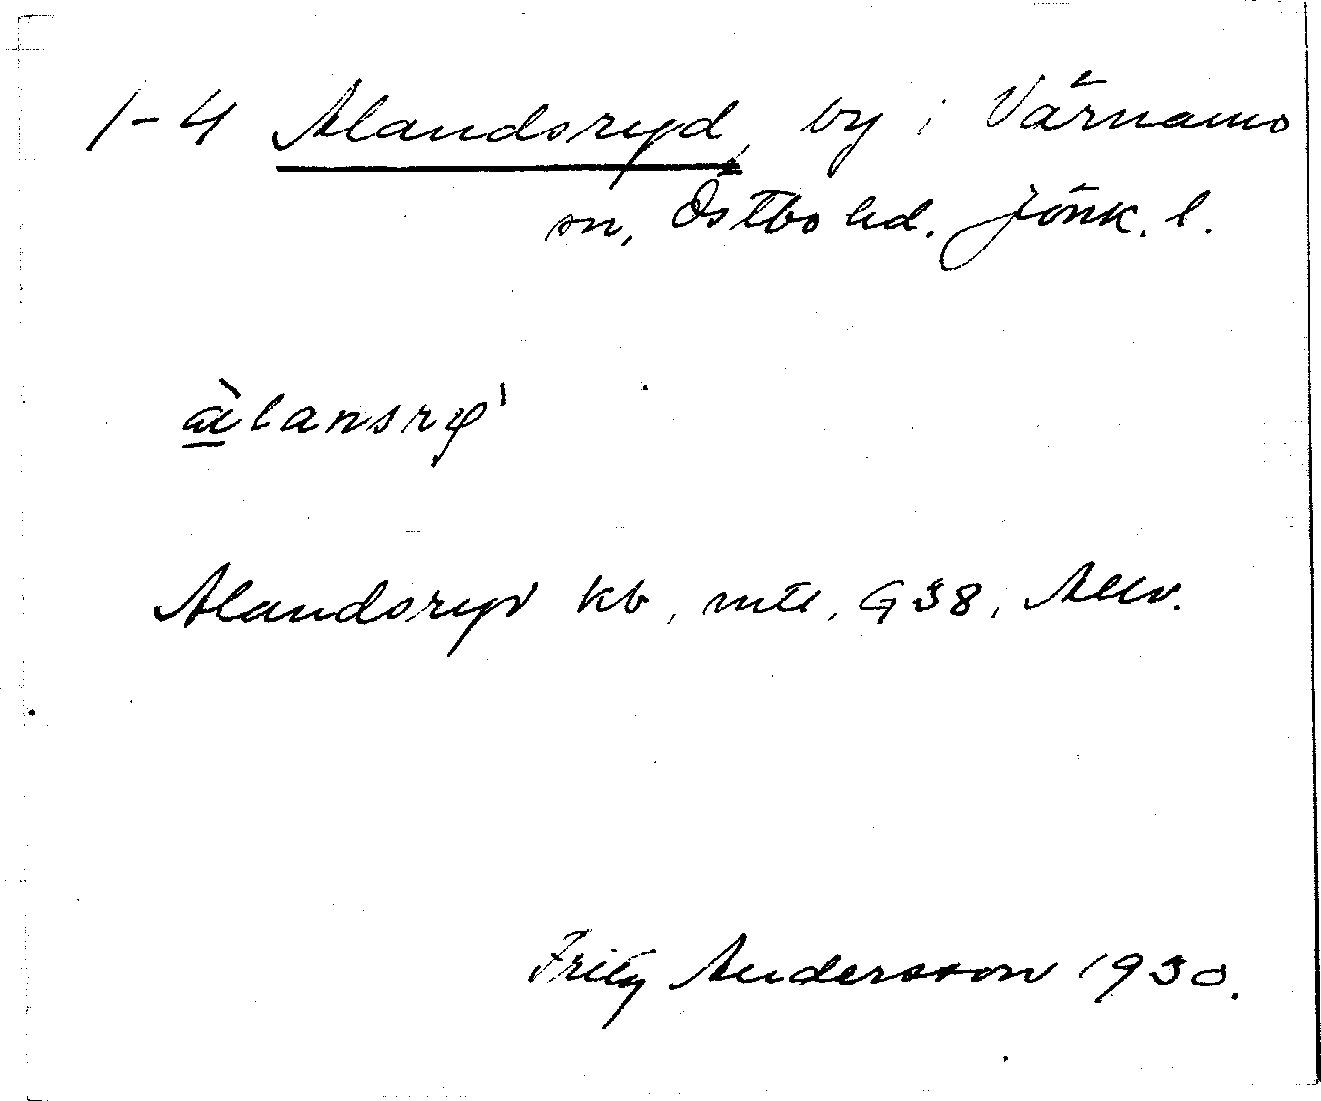 1-4 Alandsryd, by i Värnamo
sn, Östbo hd. Jönk. l.
Alandsryd kb, mtl, G38,
Fritz Andersson 1930.